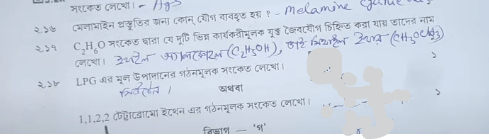 সংকেত লেখো। - Ag₂S
২.১৬ মেলামাইন প্রস্তুতির জন্য কোন্ যৌগ ব্যবহৃত হয় ? - Melamine
২.১৭ C₂H₆O সংকেত দ্বারা যে দুটি ভিন্ন কার্যকরীমূলক যুক্ত জৈবযৌগ চিহ্নিত করা যায় তাদের নাম
লেখো। ইথাইল অ্যালকোহল (C₂H₅OH), ডাই মিথাইল ইথার (CH₃OCH₃)
২.১৮ LPG এর মূল উপাদানের গঠনমূলক সংকেত লেখো।
অথবা
1,1,2,2 টেট্রাব্রোমো ইথেন এর গঠনমূলক সংকেত লেখো।
বিভাগ — 'গ'